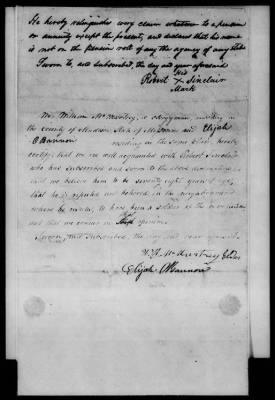 He hereby relinquishes every claim whatever to a pension
or annuity except the present, and declares that his name
is not on the pension roll of any the agency of any state
Sworn to, and subscribed, the day and year aforesaid
His
Robert X Sinclair
Mark
We, William a clergyman, residing in
the County of Madison State of and Elijah
O'Bannon residing in the same State, hereby
certify that we are well acquainted with Robert Sinclair
who has subscribed and sworn to the above declaration
that we believe him to be seventy eight years of age
that he is reputed and believed, in the neighborhood
where he resides, to have been a soldier of the revolution
and that we concur in that opinion
Sworn, and Subscribed, the day and year aforesaid
Elijah O'Bannon